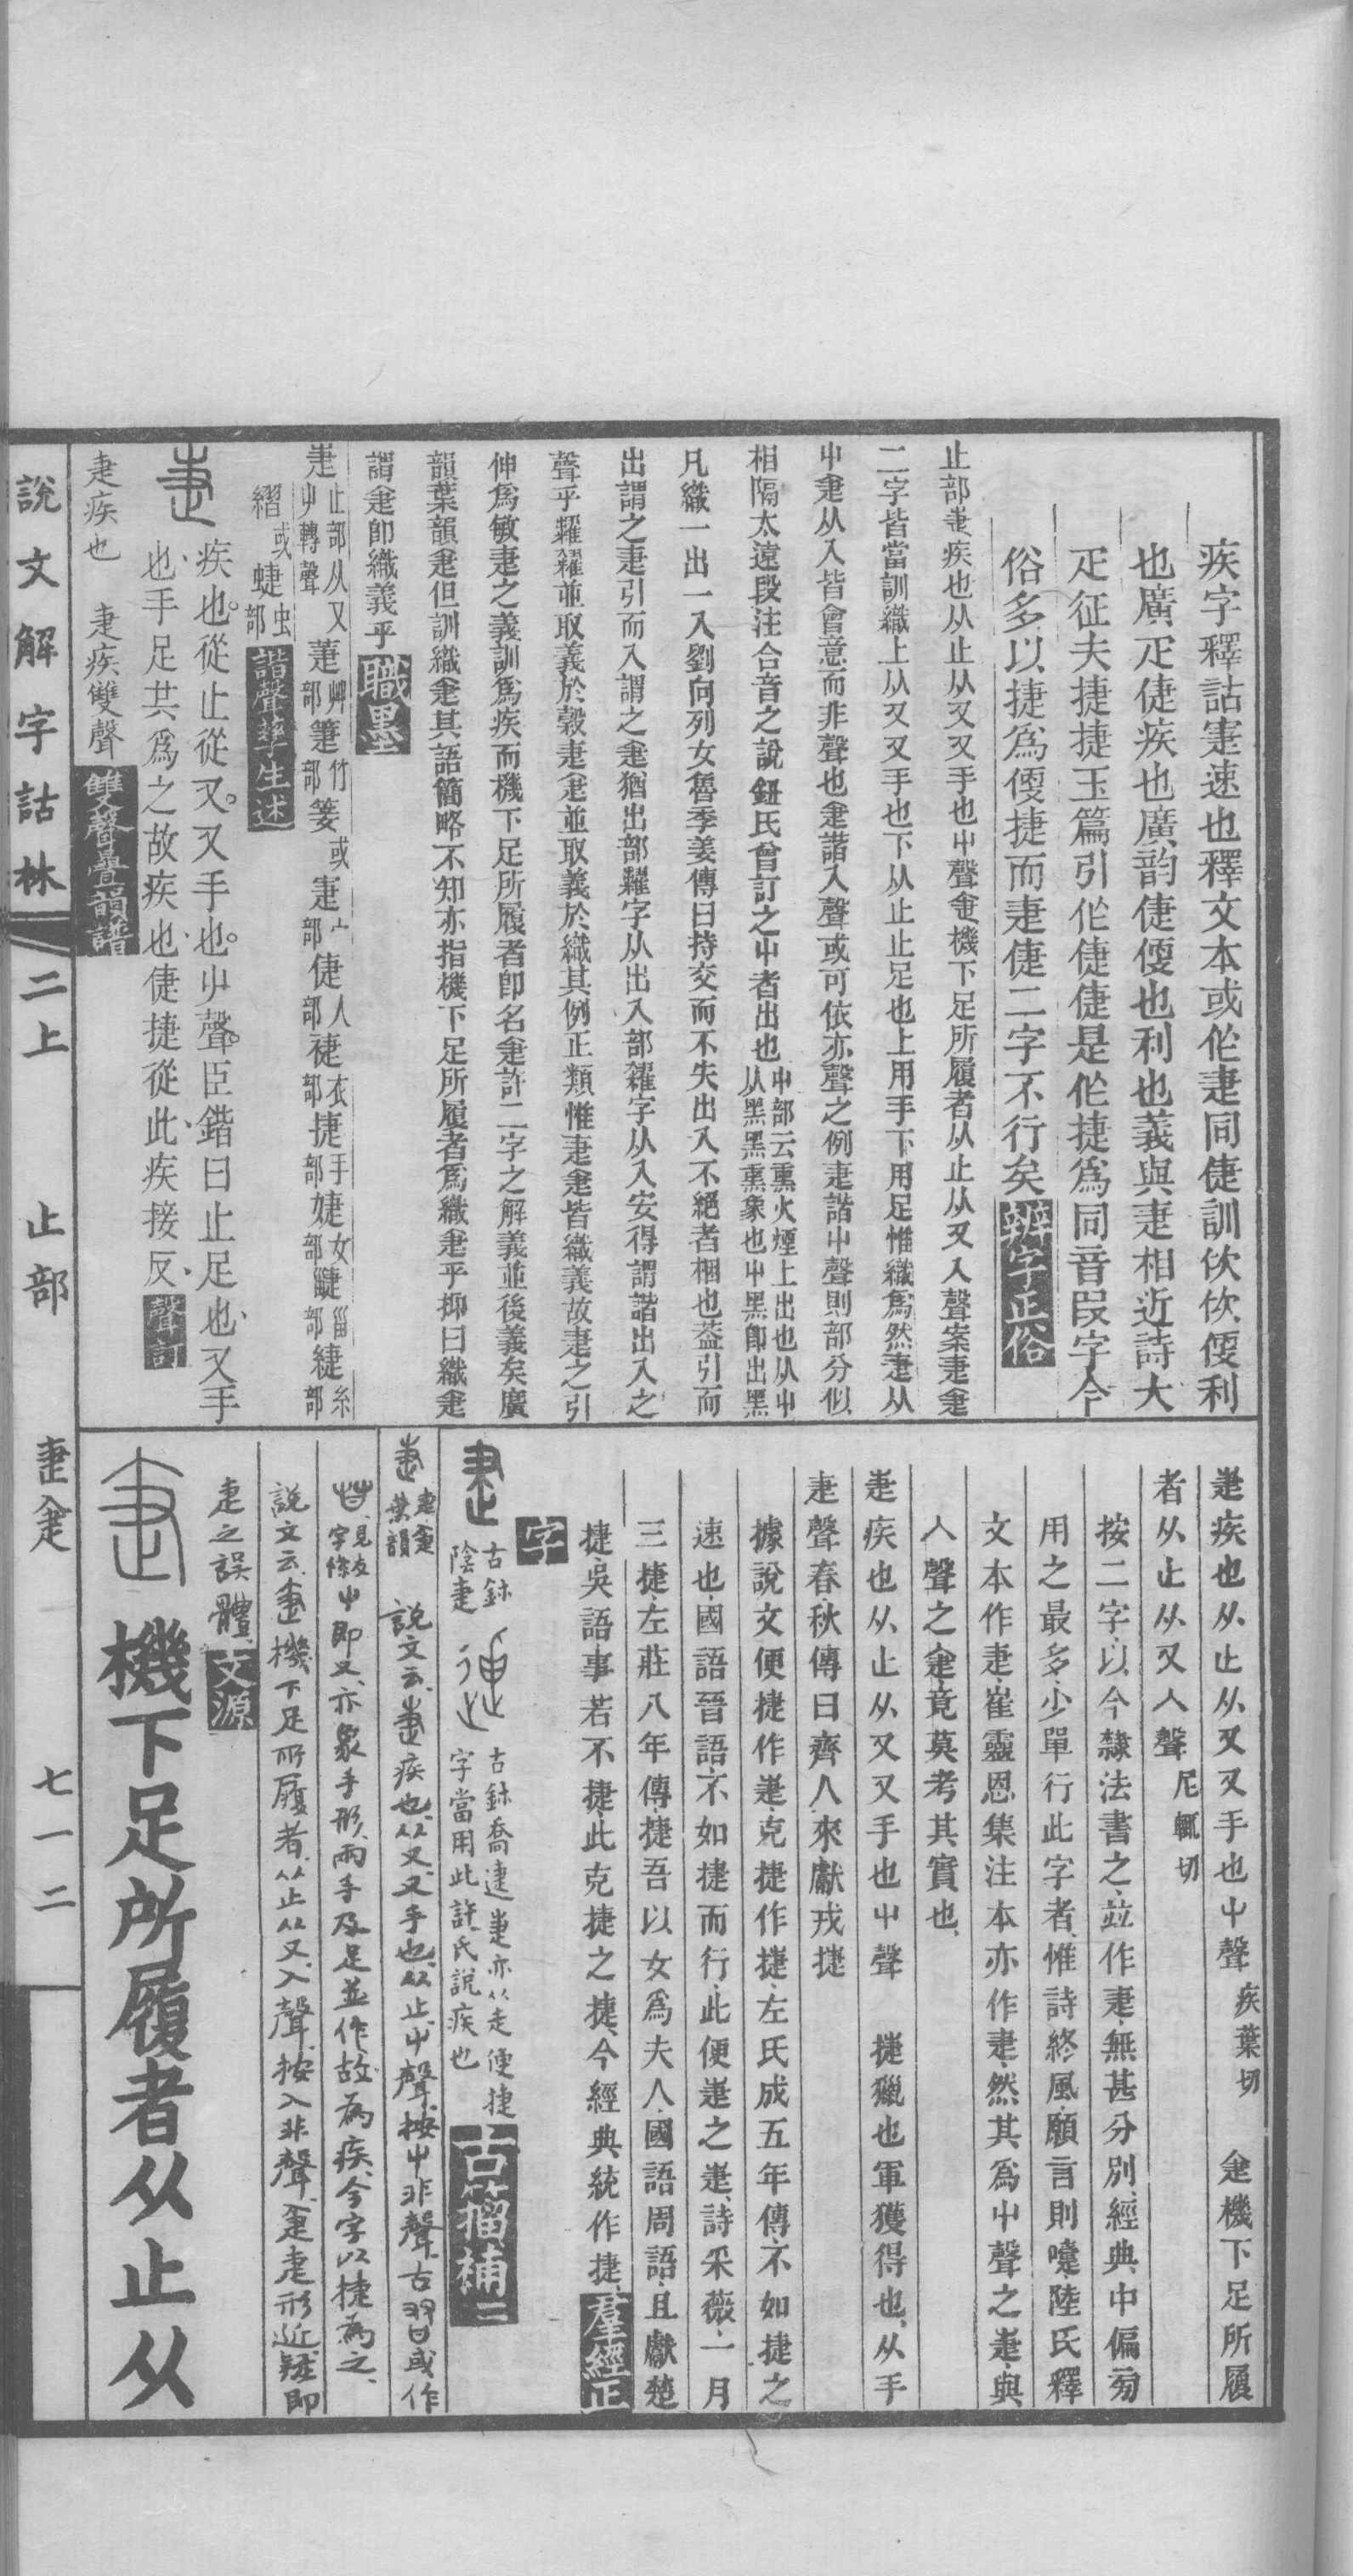 疾字釋詁寁速也釋文本或作疌同倢訓佽佽㑮利
也廣疋倢疾也廣韵倢㑮也利也義與疌相近詩大
疋征夫捷捷玉篇引作倢倢是作捷爲同音叚字今
俗多以捷爲㑮捷而疌倢二字不行矣辨字正俗
止部疌疾也从止从又又手也屮聲疌機下足所履者从止从又入聲案疌疌
二字皆當訓織上从又又手也下从止止足也上用手下用足惟織爲然疌从
屮疌从入皆會意而非聲也疌諧入聲或可依亦聲之例疌諧屮聲則部分似
相隔太遠段注合音之說鈕氏曾訂之屮者出也屮部云熏火煙上出也从屮从黑屮黑熏象也屮黑卽出黑
凡織一出一入劉向列女魯季姜傳曰持交而不失出入不絕者梱也葢引而
出謂之疌引而入謂之疌猶出部糶字从出入部糴字从入安得謂諧出入之
聲乎糶糴並取義於穀疌疌並取義於織其例正類惟疌疌皆織義故疌之引
伸爲敏疌之義訓爲疾而機下足所履者卽名疌許二字之解義並後義矣廣
韻葉韻疌但訓織疌其語簡略不知亦指機下足所履者爲織疌乎抑曰織疌
謂疌卽織義乎職墨
疌止部从又屮轉聲萐艸部箑竹部篓或寁宀部倢人部䘿衣部捷手部婕女部䵿甾部緁糸部
緝或蜨虫部諧聲孳生述
疌疾也從止從又又手也屮聲臣鍇曰止足也又手
也手足共爲之故疾也倢捷從此疾接反聲訂
疌疾也　疌疾雙聲雙聲疊韻譜
說文解字詁林　二上　止部　疌疌　七一二
疌疾也从止从又又手也屮聲疾葉切　疌機下足所履
者从止从又入聲尼輒切
按二字以今隸法書之竝作疌無甚分別經典中偏旁
用之最多少單行此字者惟詩終風願言則嚔陸氏釋
文本作疌崔靈恩集注本亦作疌然其爲屮聲之疌與
入聲之疌竟莫考其實也
疌疾也从止从又又手也屮聲　捷獵也軍獲得也从手
疌聲春秋傳曰齊人來獻戎捷
據說文便捷作疌克捷作捷左氏成五年傳不如捷之
速也國語晉語不如捷而行此便疌之疌詩采薇一月
三捷左莊八年傳捷吾以女爲夫人國語周語且獻楚
捷吳語事若不捷此克捷之捷今經典統作捷羣經正
字
古鉨陰疌　古鉨喬疌疌亦从走便捷字當用此許氏說疾也古籀補二
疌疌葉韻　說文云疌疾也从又又手也从止屮聲按屮非聲古習或作
字條屮卽又亦象手形兩手及足並作故爲疾今字以捷爲之
說文云疌機下足所履者从止从又入聲按入非聲疌疌形近疑即
疌之誤體文源
機下足所履者从止从